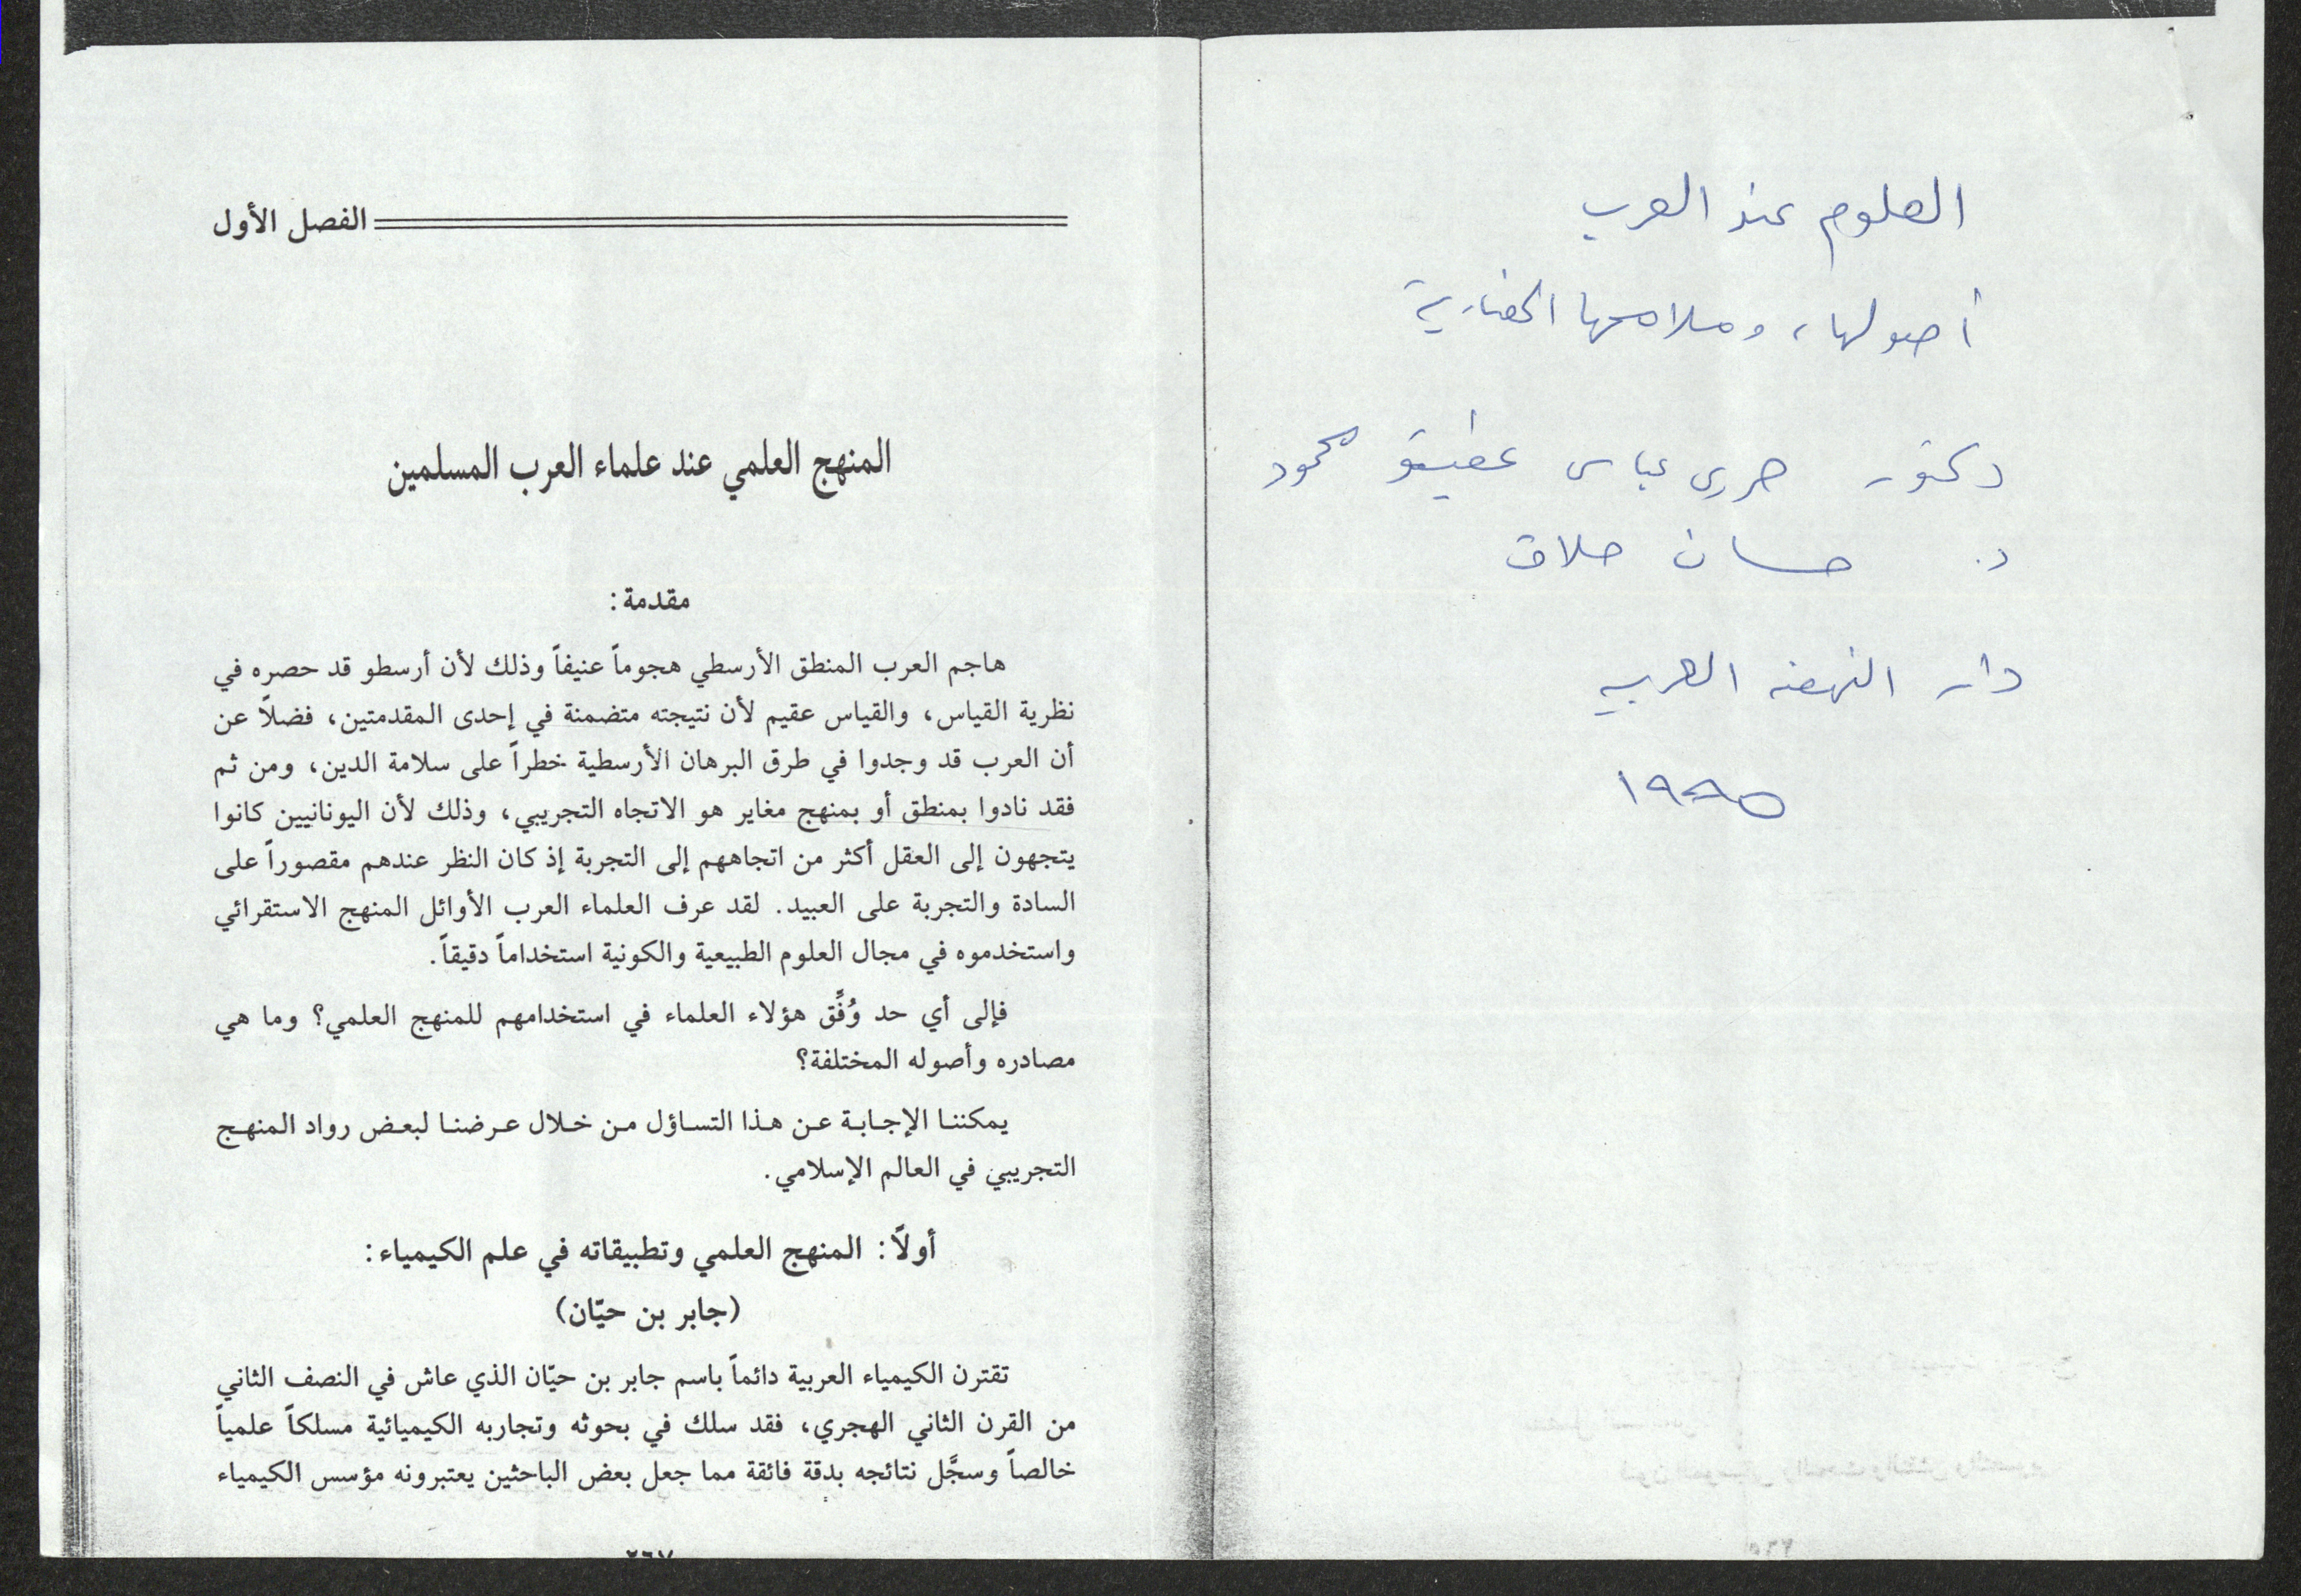 العلوم عند العرب
أصولها، وملامحها الحضارية
دكتور حربى عباس عطيتو محمود
د. حسان حلاق
دار النهضه العربيه
١٩٩٥
الفصل الأول
المنهج العلمي عند علماء العرب المسلمين
مقدمة:
هاجم العرب المنطق الأرسطي هجوماً عنيفاً وذلك لأن أرسطو قد حصره في
نظرية القياس، والقياس عقيم لأن نتيجته متضمنة في إحدى المقدمتين، فضلاً عن
أن العرب قد وجدوا في طرق البرهان الأرسطية خطراً على سلامة الدين، ومن ثم
فقد نادوا بمنطق أو بمنهج مغاير هو الاتجاه التجريبي، وذلك لأن اليونانيين كانوا
يتجهون إلى العقل أكثر من اتجاههم إلى التجربة إذ كان النظر عندهم مقصوراً على
السادة والتجربة على العبيد. لقد عرف العلماء العرب الأوائل المنهج الاستقرائي
واستخدموه في مجال العلوم الطبيعية والكونية استخداماً دقيقاً.
فإلى أي حد وُفِّق هؤلاء العلماء في استخدامهم للمنهج العلمي؟ وما هي
مصادره وأصوله المختلفة؟
يمكننا الإجابة عن هذا التساؤل من خلال عرضنا لبعض رواد المنهج
التجريبي في العالم الإسلامي.
أولاً: المنهج العلمي وتطبيقاته في علم الكيمياء:
(جابر بن حيّان)
تقترن الكيمياء العربية دائماً باسم جابر بن حيّان الذي عاش في النصف الثاني
من القرن الثاني الهجري، فقد سلك في بحوثه وتجاربه الكيميائية مسلكاً علمياً
خالصاً وسجَّل نتائجه بدقة فائقة مما جعل بعض الباحثين يعتبرونه مؤسس الكيمياء
٢٦٧